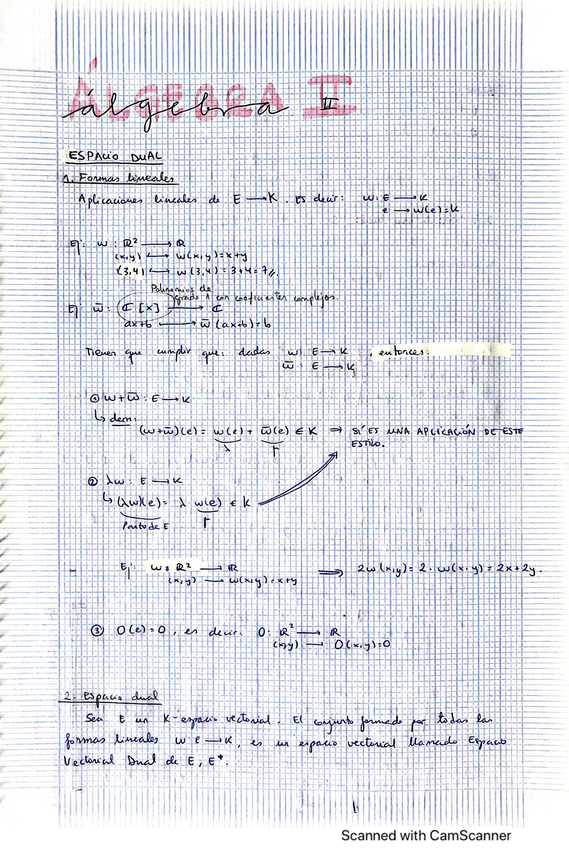 ÁLGEBRA II
álgebra II
ESPACIO DUAL
1. Formas lineales
Aplicaciones lineales de E → K. Es decir: w: E → K
e → w(e)=K
Ej: w: ℝ² → ℝ
(x,y) ↦ w(x,y)=x+y
(3,4) ↦ w(3,4)=3+4=7//.
Polinomios de
grado 1 con coeficientes complejos.
Ej: w̄: ℂ[x] → ℂ
ax+b → w̄(ax+b)=b
Tienen que cumplir que: dadas w: E → K , entonces:
w̄: E → K
① w+w̄: E → K
↳ dem:
(w+w̄)(e) = w(e) + w̄(e) ∈ K ⇒ SÍ ES UNA APLICACIÓN DE ESTE
ESTILO.
② λw: E → K
↳ (λw)(e) = λ·w(e) ∈ K
Punto de E
- Ej: w: ℝ² → ℝ ⇒ 2w(x,y) = 2·w(x,y) = 2x+2y.
(x,y) → w(x,y)=x+y
③ O(e)=0, es decir: O: ℝ² → ℝ
(x,y) → O(x,y)=0
2. Espacio dual
Sea E un K-espacio vectorial. El conjunto formado por todas las
formas lineales w: E → K, es un espacio vectorial llamado Espacio
Vectorial Dual de E, E*.
1
Scanned with CamScanner